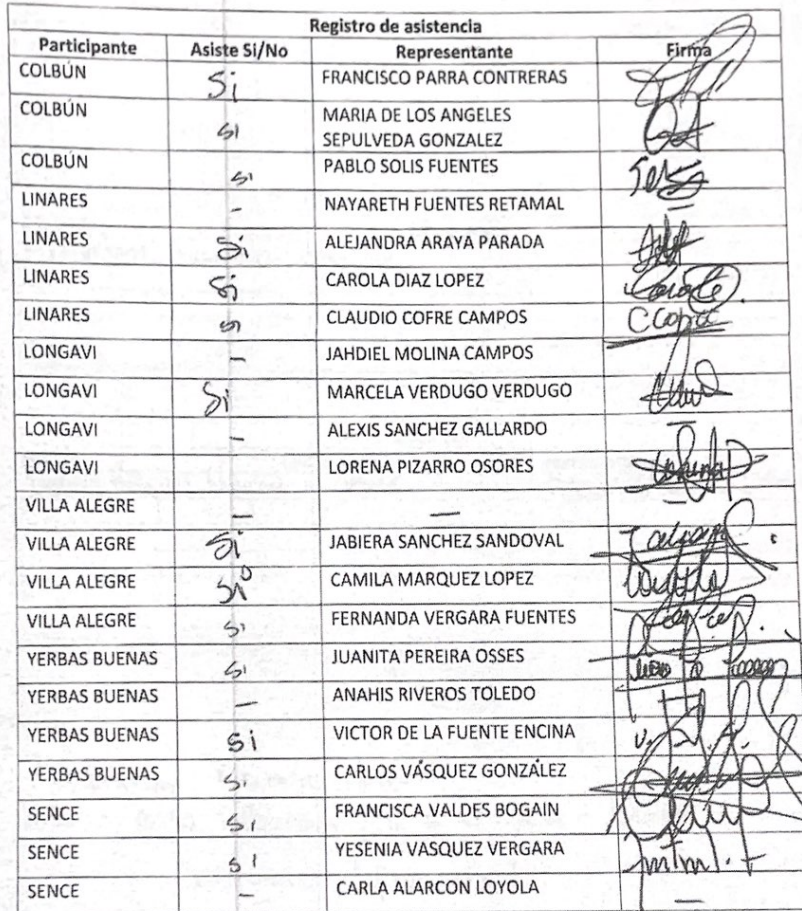 Registro de asistencia
Participante Asiste Si/No Representante Firma
COLBÚN Si FRANCISCO PARRA CONTRERAS
COLBÚN si MARIA DE LOS ANGELES
SEPULVEDA GONZALEZ
COLBÚN si PABLO SOLIS FUENTES
LINARES – NAYARETH FUENTES RETAMAL –
LINARES Si ALEJANDRA ARAYA PARADA
LINARES Si CAROLA DIAZ LOPEZ
LINARES si CLAUDIO COFRE CAMPOS
LONGAVI – JAHDIEL MOLINA CAMPOS
LONGAVI Si MARCELA VERDUGO VERDUGO
LONGAVI – ALEXIS SANCHEZ GALLARDO –
LONGAVI – LORENA PIZARRO OSORES
VILLA ALEGRE – – –
VILLA ALEGRE Si JABIERA SANCHEZ SANDOVAL
VILLA ALEGRE si CAMILA MARQUEZ LOPEZ
VILLA ALEGRE si FERNANDA VERGARA FUENTES
YERBAS BUENAS si JUANITA PEREIRA OSSES
YERBAS BUENAS – ANAHIS RIVEROS TOLEDO
YERBAS BUENAS si VICTOR DE LA FUENTE ENCINA
YERBAS BUENAS si CARLOS VÁSQUEZ GONZÁLEZ
SENCE si FRANCISCA VALDES BOGAIN
SENCE si YESENIA VASQUEZ VERGARA
SENCE – CARLA ALARCON LOYOLA –